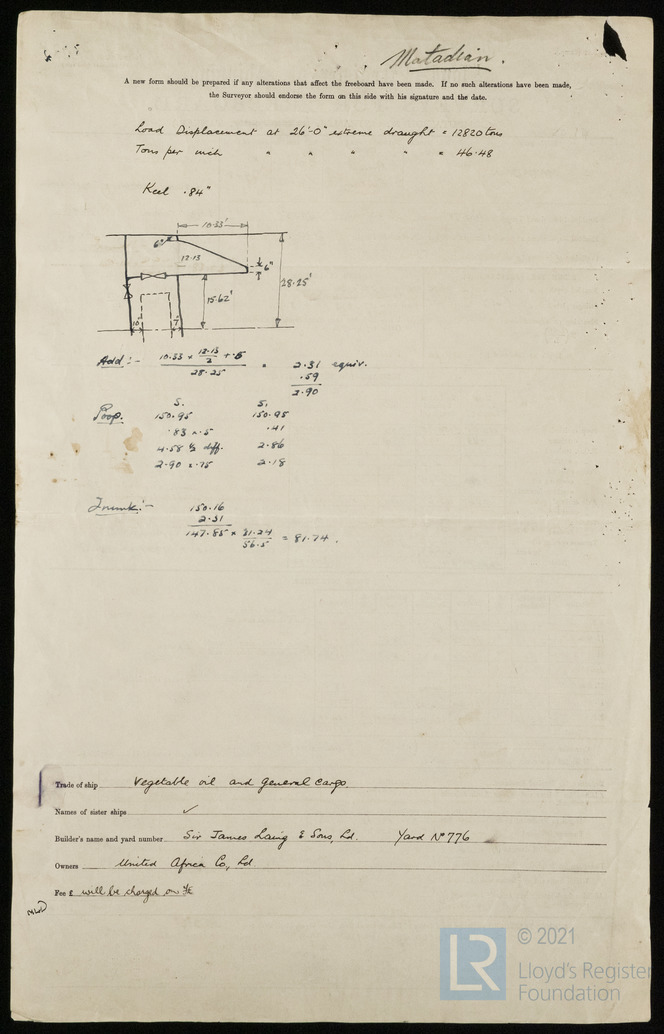 Matadian.
A new form should be prepared if any alterations that affect the freeboard have been made. If no such alterations have been made,
the Surveyor should endorse the form on this side with his signature and the date.
Load Displacement at 26'-0" extreme draught = 12820 tons
Tons per inch " " " " = 46.48
Keel .84"
10.33'
6"
12.13
6"
28.25'
15.62'
10"
7'
Add :- 10.33 + 12.13/2 + .5 / 28.25 = 2.31 equiv.
.59
2.90
S. S.
Poop. 150.95 150.95
.83 x .5 .41
4.58 1/2 diff. 2.86
2.90 x .75 2.18
Trunk :- 150.16
2.31
147.85 x 31.24/56.5 = 81.74.
Trade of ship Vegetable oil and general cargo
Names of sister ships ✓
Builder's name and yard number Sir James Laing & Sons, Ld. Yard No 776
Owners United Africa Co, Ld
Fee £ will be charged on
LR
© 2021
Lloyd's Register
Foundation